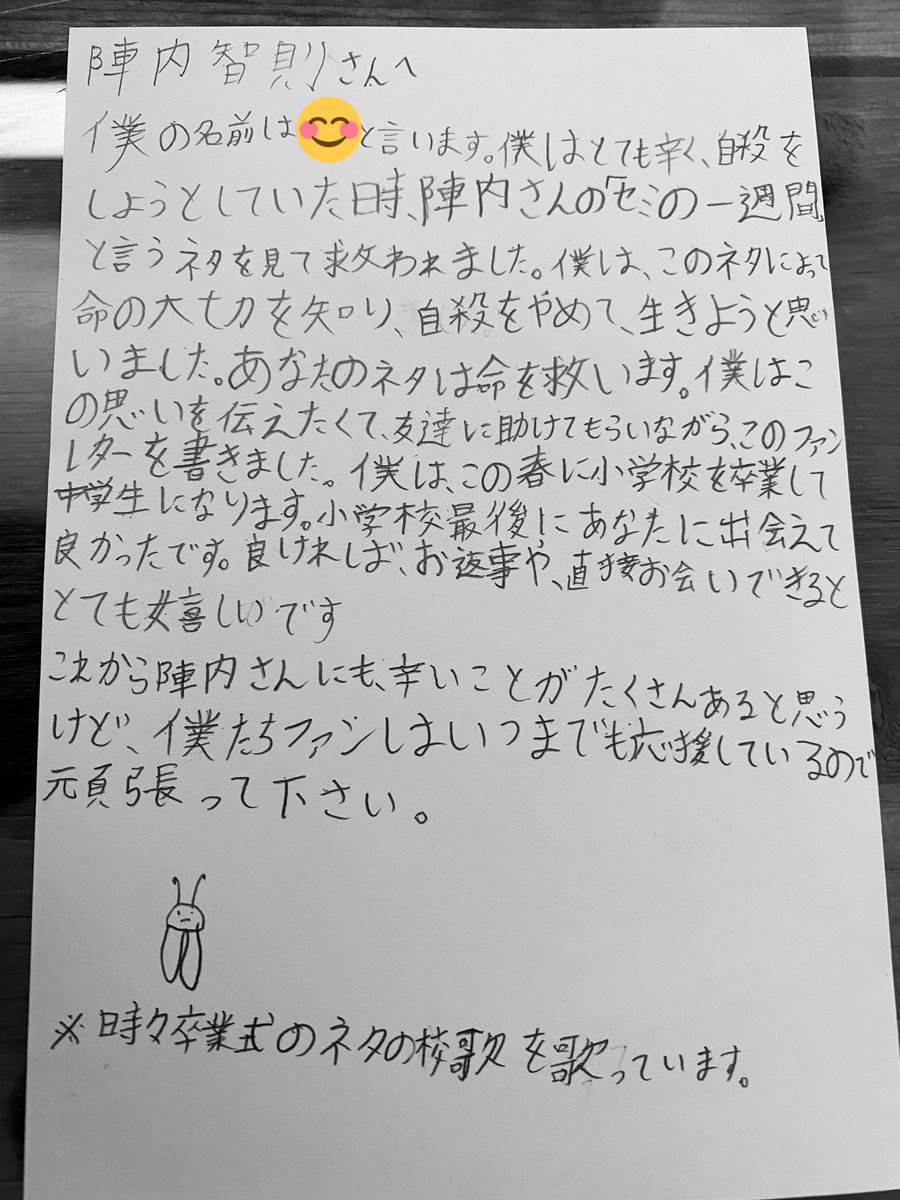 陣内智則さんへ
僕の名前は😊と言います。僕はとても辛く、自殺を
しようとしていた時、陣内さんの「セミの一週間」
と言うネタを見て救われました。僕は、このネタによって
命の大切を知り、自殺をやめて、生きようと思い
いました。あなたのネタは命を救います。僕はこ
の思いを伝えたくて、友達に助けてもらいながら、このファン
レターを書きました。僕は、この春に小学校を卒業して
中学生になります。小学校最後にあなたに出会えて
良かったです。良ければ、お返事や、直接お会いできると
とても嬉しいです
これから陣内さんにも、辛いことがたくさんあると思う
けど、僕たちファンしはいつまでも応援しているので
頑張って下さい。
※時々卒業式のネタの校歌を歌っています。